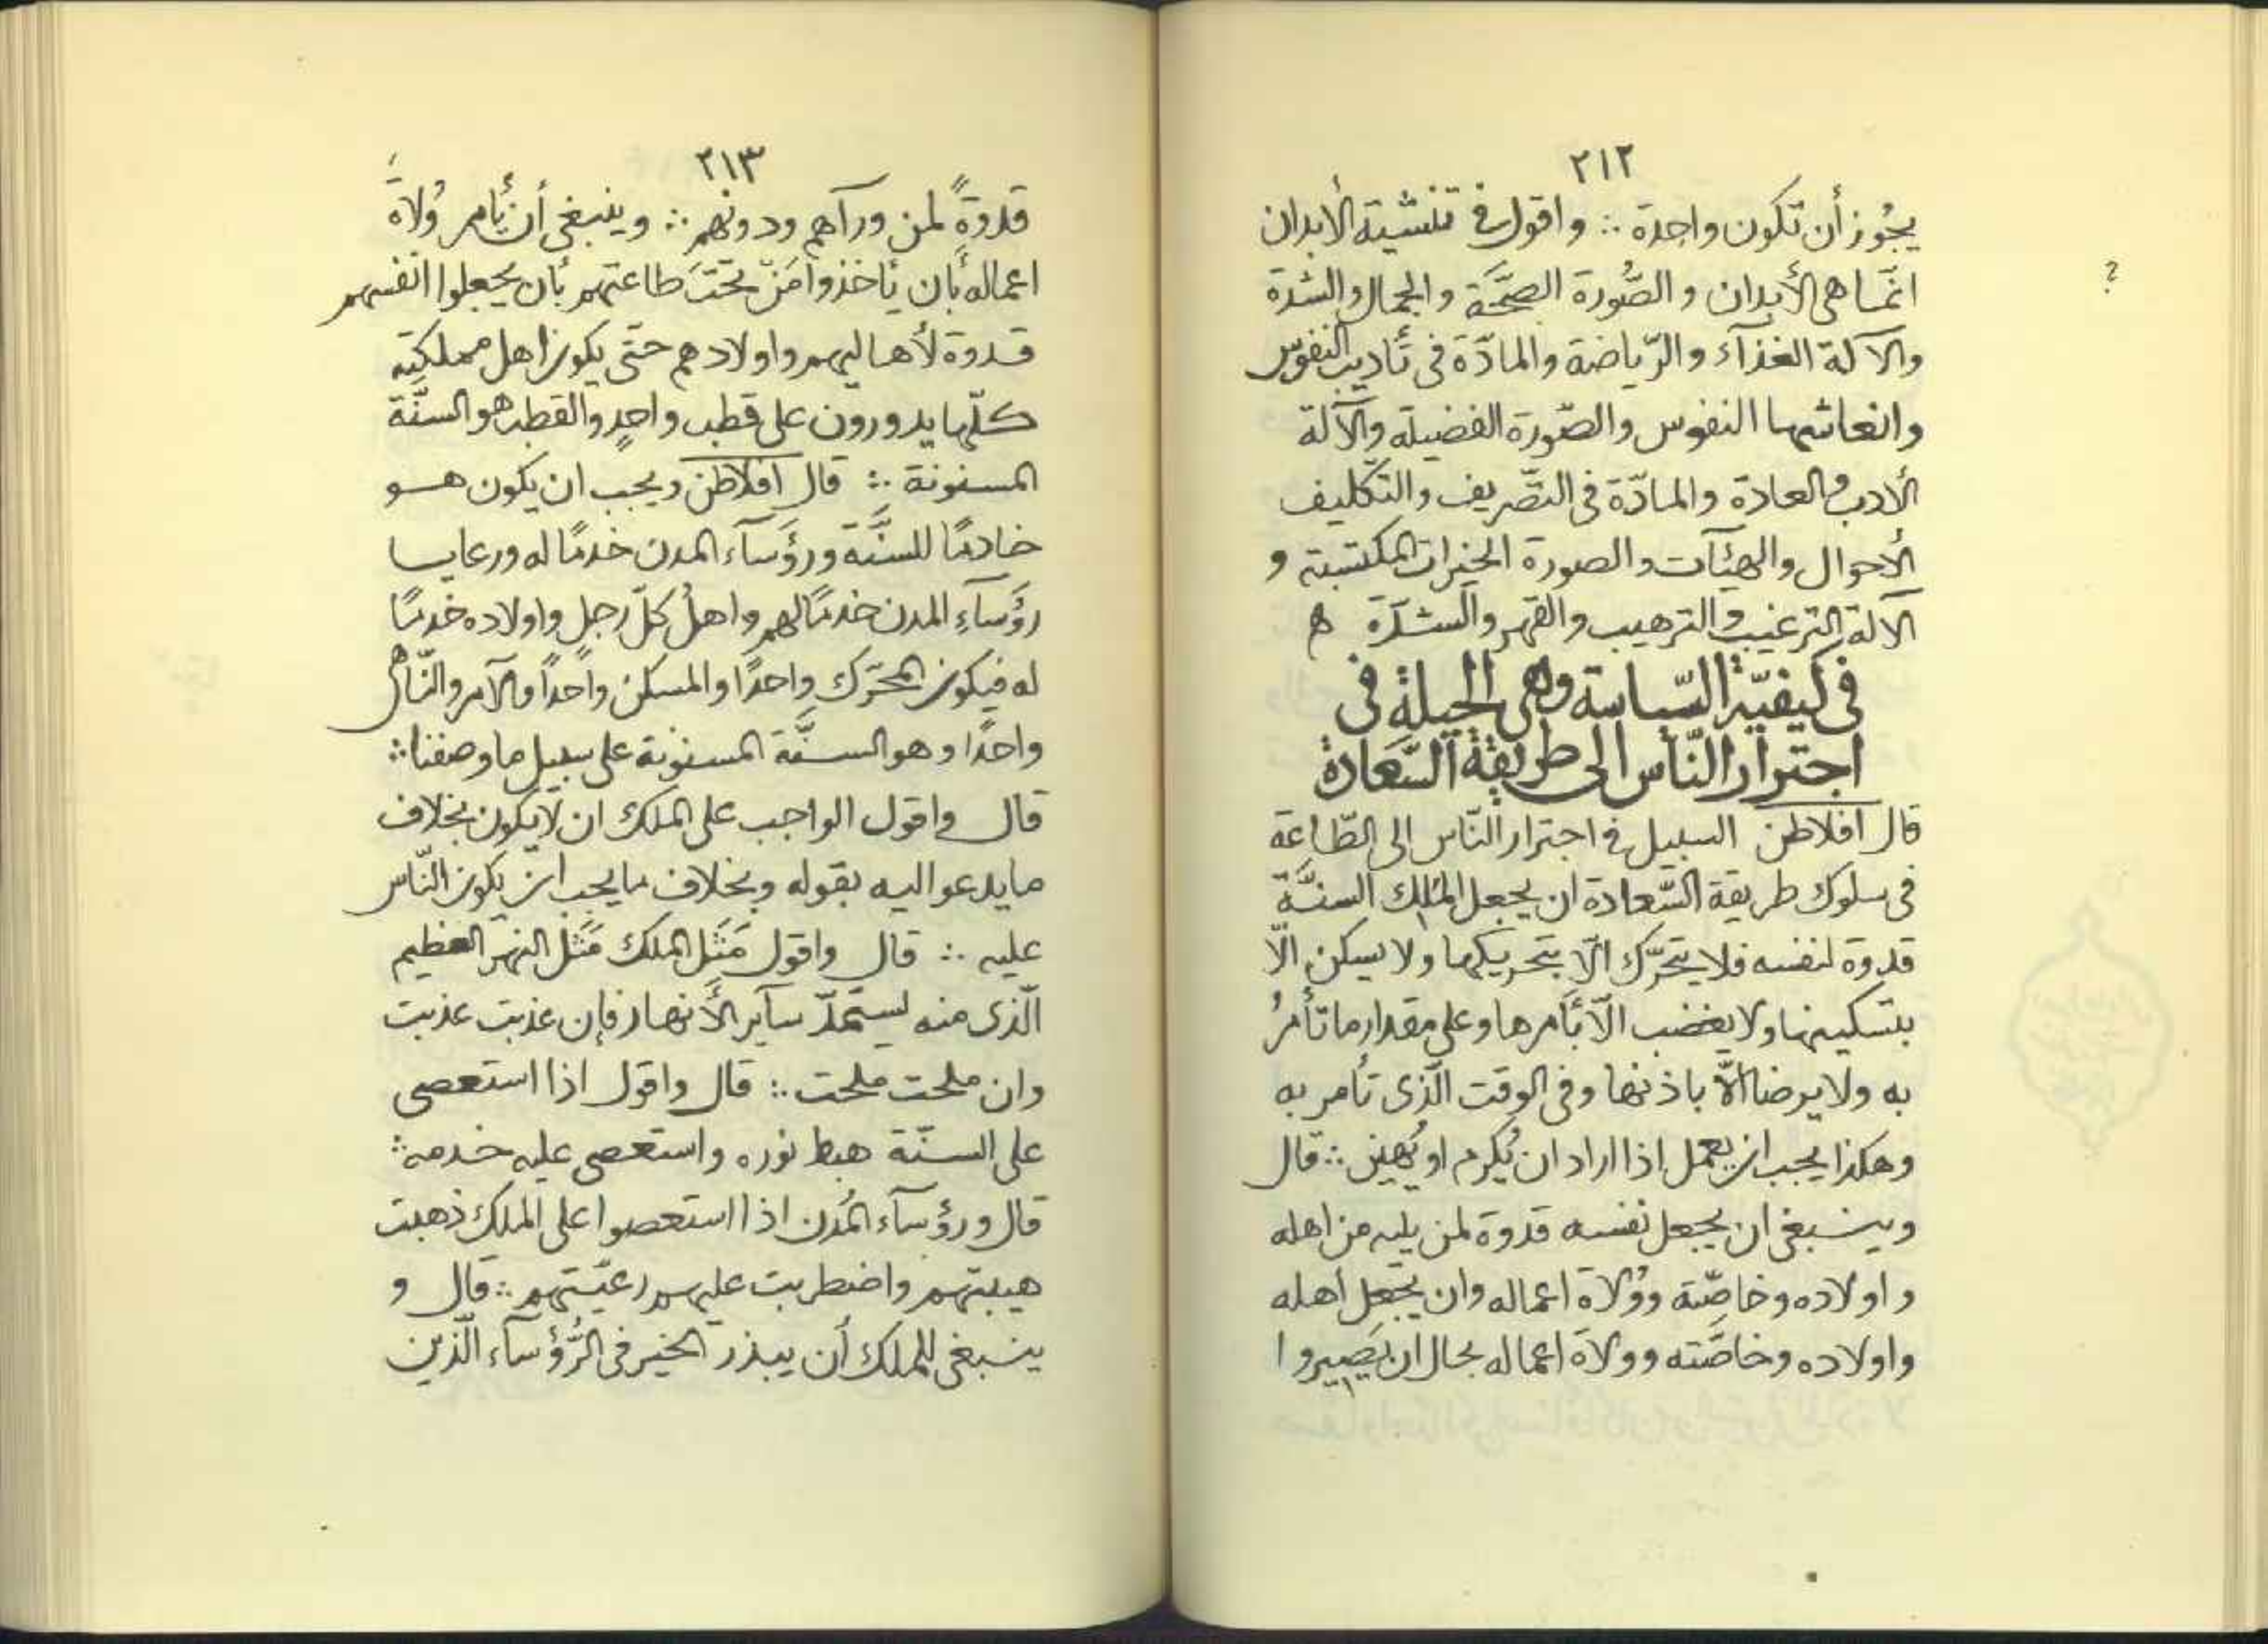 ٢١٢
يجُوز أن تكون واحدة ∴ واقول فى تنشية الأبدان
انّما هى الأبدان والصُّورة الصحَّة والجمال والشدة
والآلة الغذآء والرّياضة والمادّة فى تأديب النفوس
وانعاشها النفوس والصّورة الفضيلة والآلة
الأدب والعادة والمادّة فى التصّريف والتكّليف
الأحوال والهيئآت والصورة الخيرات المكتسبة و
الآلة الترغيب والترهيب والقهر والشدّة ه
فى كيفيّة السّياسة وهى الحيلة فى
اجترار النّاس الى طريقة السّعادة
قال افلاطن السبيل فى اجترار النّاس الى الطّاعة
فى سلوك طريقة السّعادة ان يجعل الملك السنّة
قدوة لنفسه فلا يتحرّك الّا بتحريكها ولا يسكن الّا
بتسكينها ولا يغضب الّا بأمرها وعلى مقدار ما تأمرُ
به ولا يرضا الّا باذنها وفى الوقت الّذى تأمر به
وهكذا يجب ان يعمل اذا اراد ان يُكرم او يُهين ∴ قال
وينبغى ان يجعل نفسه قدوة لمن يليه من اهله
واولاده وخاصّته ووُلاة اعماله وان يجعل أهله
واولاده وخاصَّته وولاة اعماله بحال ان يَصيروا
؟
٢١٣
قدوةً لمن ورآهم ودونهم ∴ وينبغى أن يأمر وُلاةَ
اعماله بأن يأخذوا مَنْ تحتَ طاعتهم بأن يجعلوا انفسهم
قدوة لأهاليهم واولادهم حتّى يكون اهل مملكتِه
كلّها يدورون على قطب واحدٍ والقطب هو السنّة
المسنونة ∴ قال افلاطن ويجب ان يكون هو
خادمًا للسنَّة ورؤَسآء المدن خدمًا له ورعايا
رؤَسآءِ المدن خدمًا لهم واهلُ كلّ رجل واولاده خدمًا
له فيكون المحَرّك واحدًا والمسكن واحدًا والآمر والنّاهى
واحدًا وهو السنَّة المسنونة على سبيل ما وصفنا ∴
قال واقول الواجب على الملك ان لا يكون بخلاف
ما يدعو اليه بقوله وبخلاف ما يجب ان يكون النّاس
عليه ∴ قال واقول مَثَل الملك مَثَل النهر العظيم
الّذى منه يستمدّ سآير الأنهار فإن عذبت عذبت
وان ملحت ملحت ∴ قال واقول اذا استعصى
على السنّة هبط نوره واستعصى عليه خدمه ∴
قال ورؤسآء المُدن اذا استعصوا على الملك ذهبت
هيبتهم واضطربت عليهم رعيّتهم ∴ قال و
ينبغى للملك أن يبذر الخير فى الرُّؤسآء الّذين